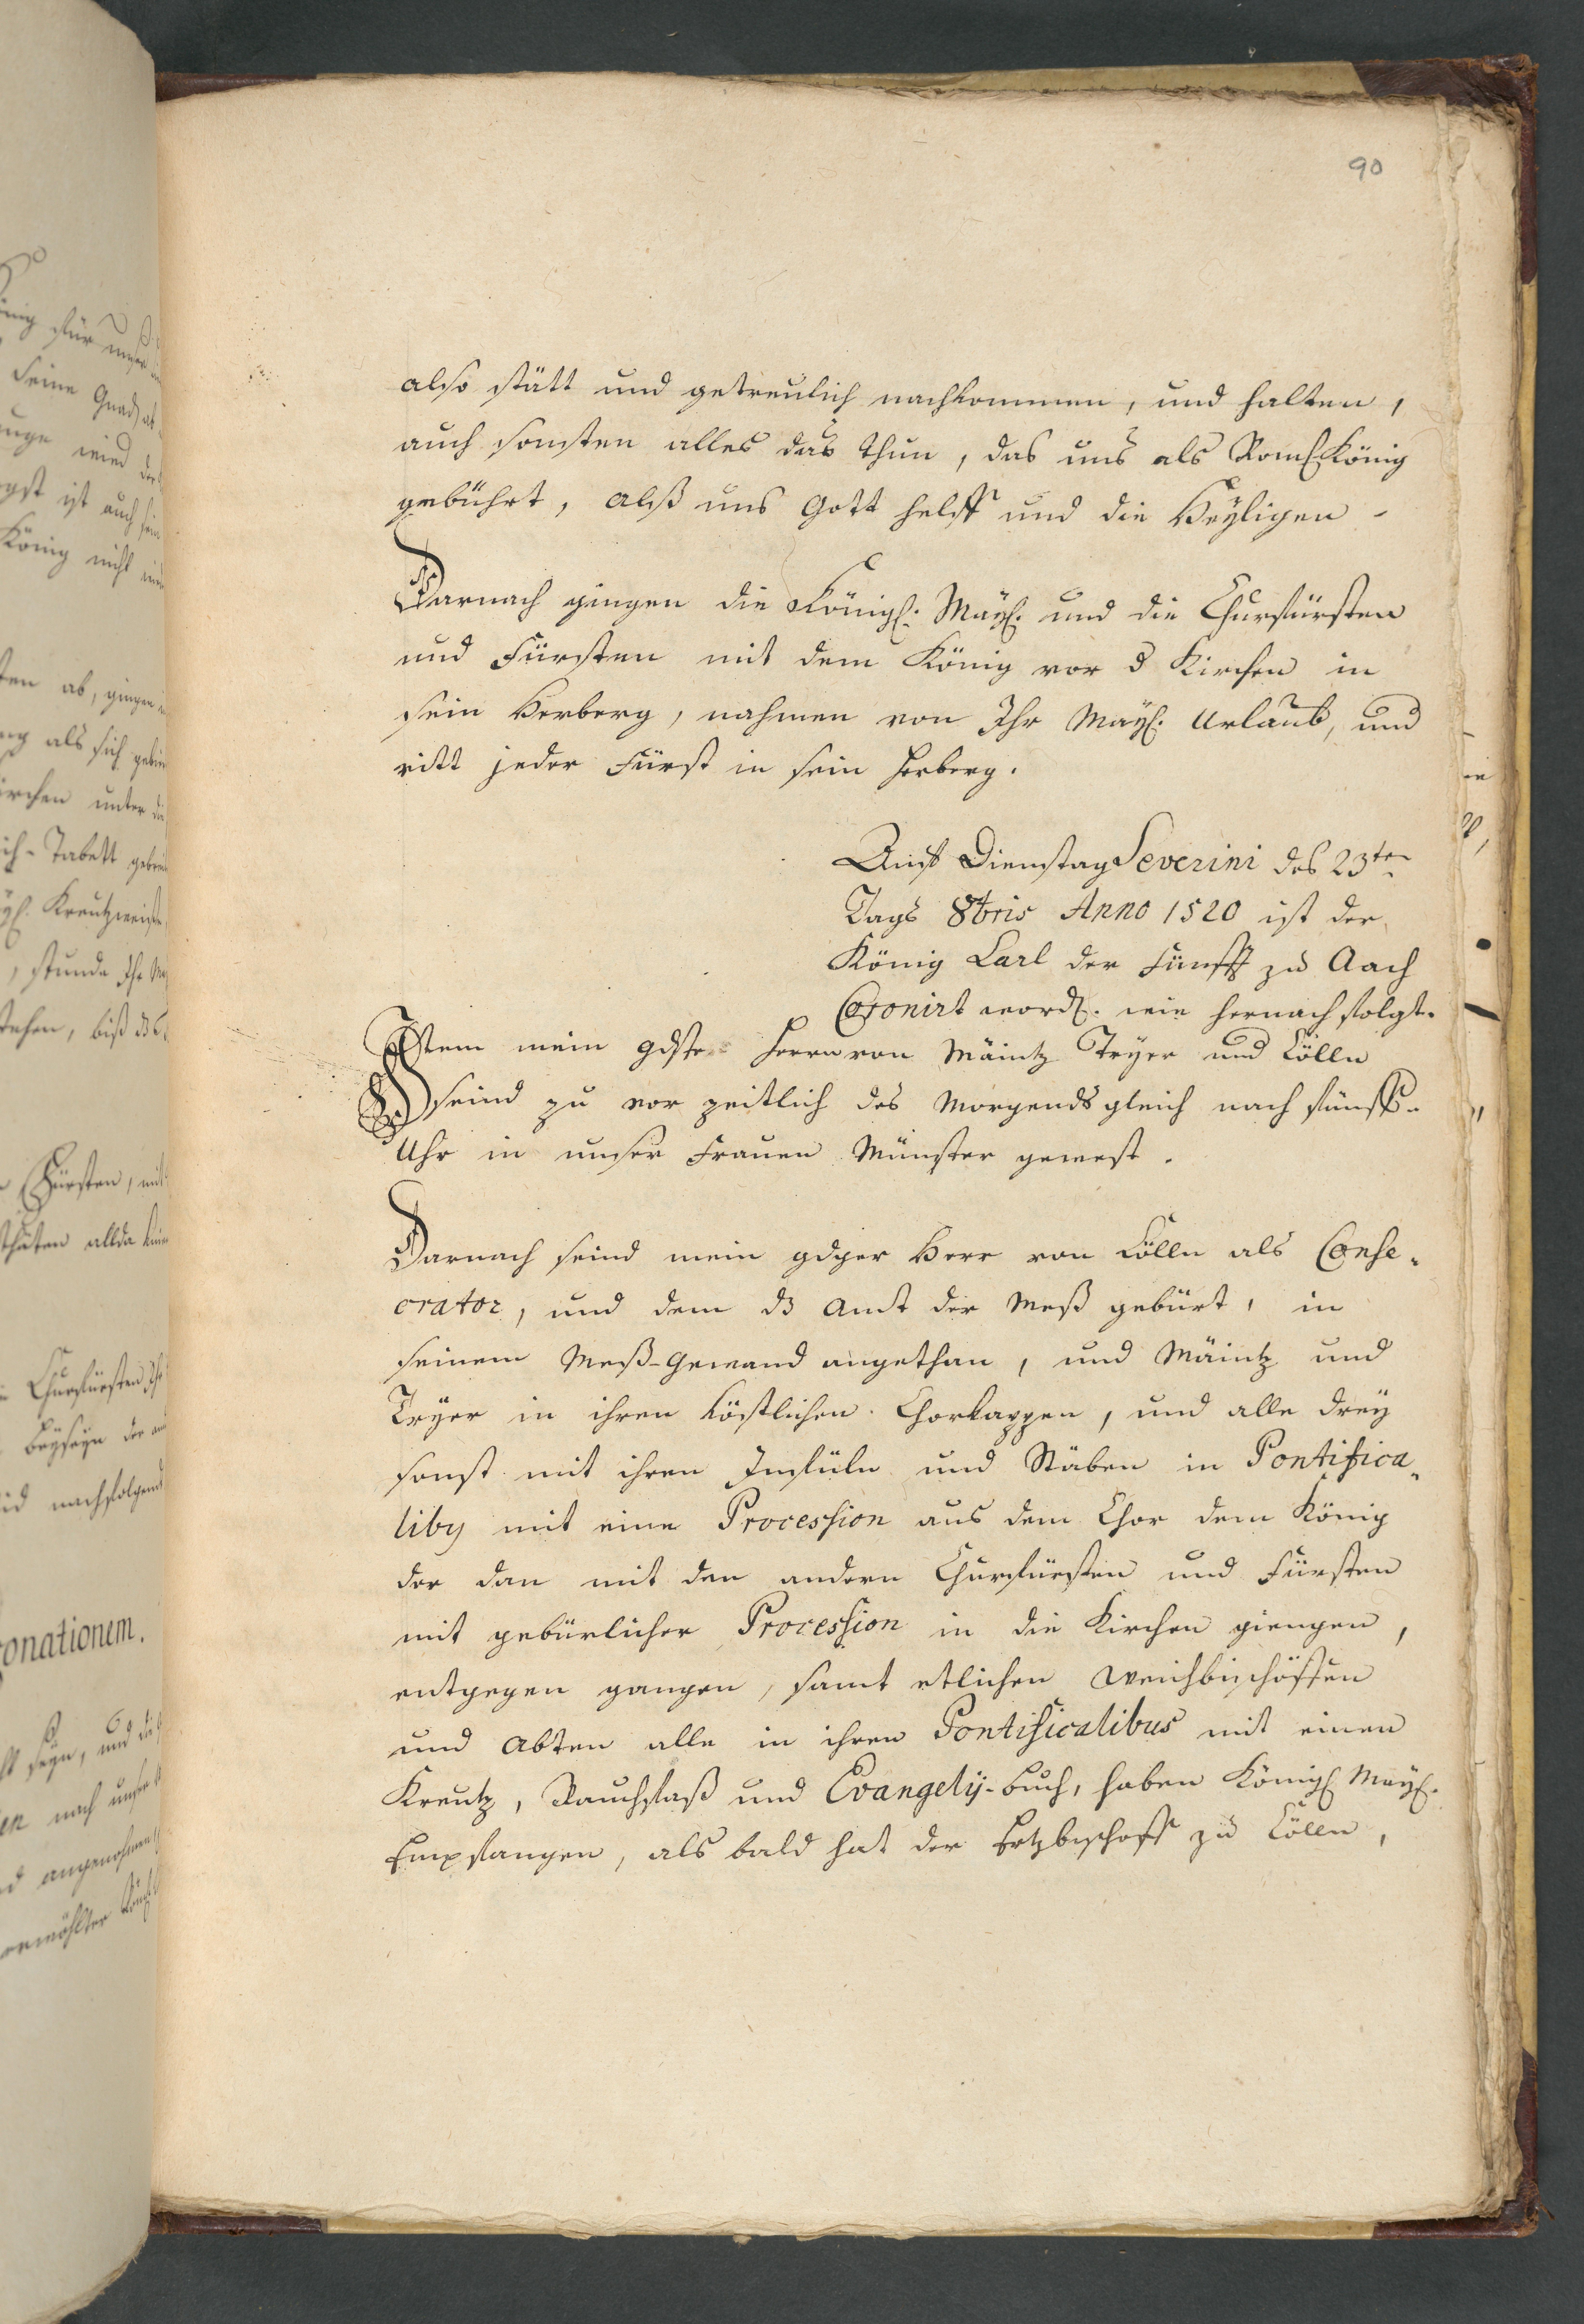 90
also stätt und getreulich nachkommen, und halten,
auch sonsten alles das thun, das uns als Röm. König
gebührt, alß uns Gott helff und die Heyligen -
Darnach gingen die Königl. Mayl. und die Churfürsten
und Fürsten mit dem König vor d Kirchen in
sein Herberg, nahmen von Ihr Mayl. Urlaub, und
ritt jeder Fürst in sein herberg.
Dienstag Severini des 23ten
Tags 8bris Anno 1520 ist der
König Carl der Fünfft zu Aach
Coronirt word. wie hernach folgt.
Item mein gdste herrn von Mäintz Tryer und Cölln
seind zu vor zeitlich des Morgends gleich nach fünff-
Uhr in unser Frauen Münster gewest.
Darnach seind mein gdger Herr von Cölln als Conse-
crator, und dem dz Amt der Meß gebürt, in
seinem Meß-Gewand angethan, und Mäintz und
Tryer in ihren köstlichen Chorkappen, und alle drey
sonst mit ihren Infüln und Stäben in Pontifica-
liby mit eine Procession aus dem Chor dem König
der dan mit den andern Churfürsten und Fürsten
mit gebürlicher Procession in die Kirchen giengen,
entgegen gangen, samt etlichen Weichbischöffen
und Abten alle in ihren Pontificalibus mit einen
Kreutz, Rauchfaß und Evangely-buch, haben Königl Mayl.
Empfangen, als bald hat der Ertzbischoff zu Cölln,